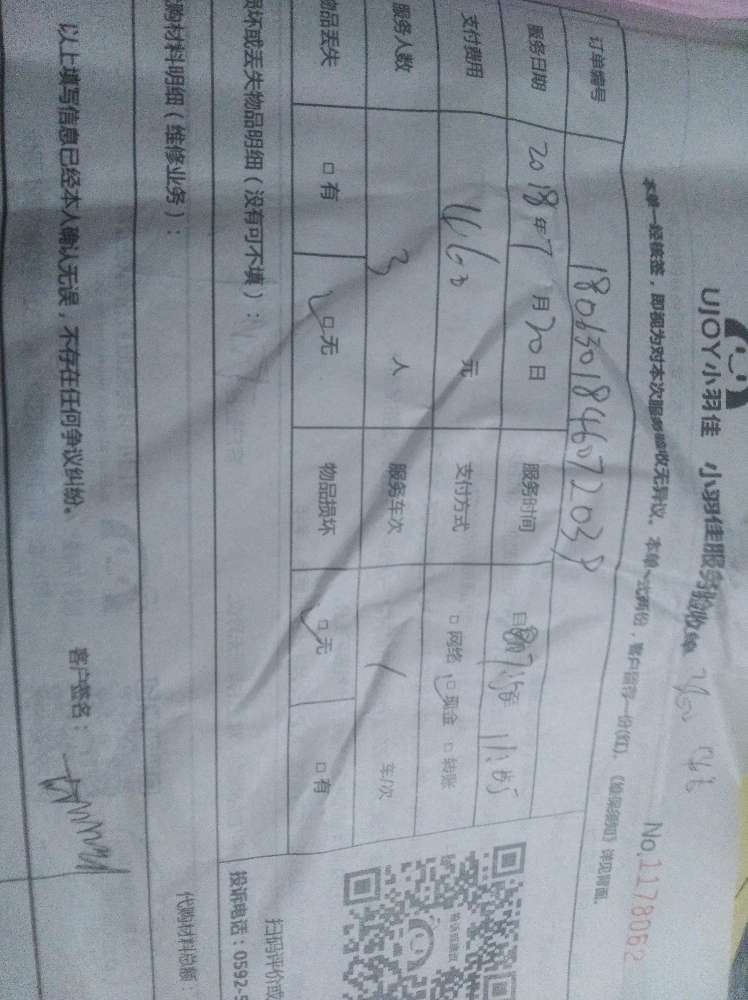 UJOY小羽佳 小羽佳服务验收单
No.1178062
本单一经核签，即视为对本次服务验收无异议。本单一式两份，客户留存一份(红)。《检保须知》详见背面。
订单编号 180630184607203
服务日期 2018年7月20日 服务时间
支付费用 元 支付方式 □网络 □现金 □转账
服务人数 3 人 服务车次 1 车/次
物品丢失 □有 □无 物品损坏 □无 □有
损坏或丢失物品明细（没有可不填）：
扫码评价或
投诉电话：0592-5
代购材料明细（维修业务）：
代购材料总额：
以上填写信息已经本人确认无误，不存在任何争议纠纷。 客户签名：